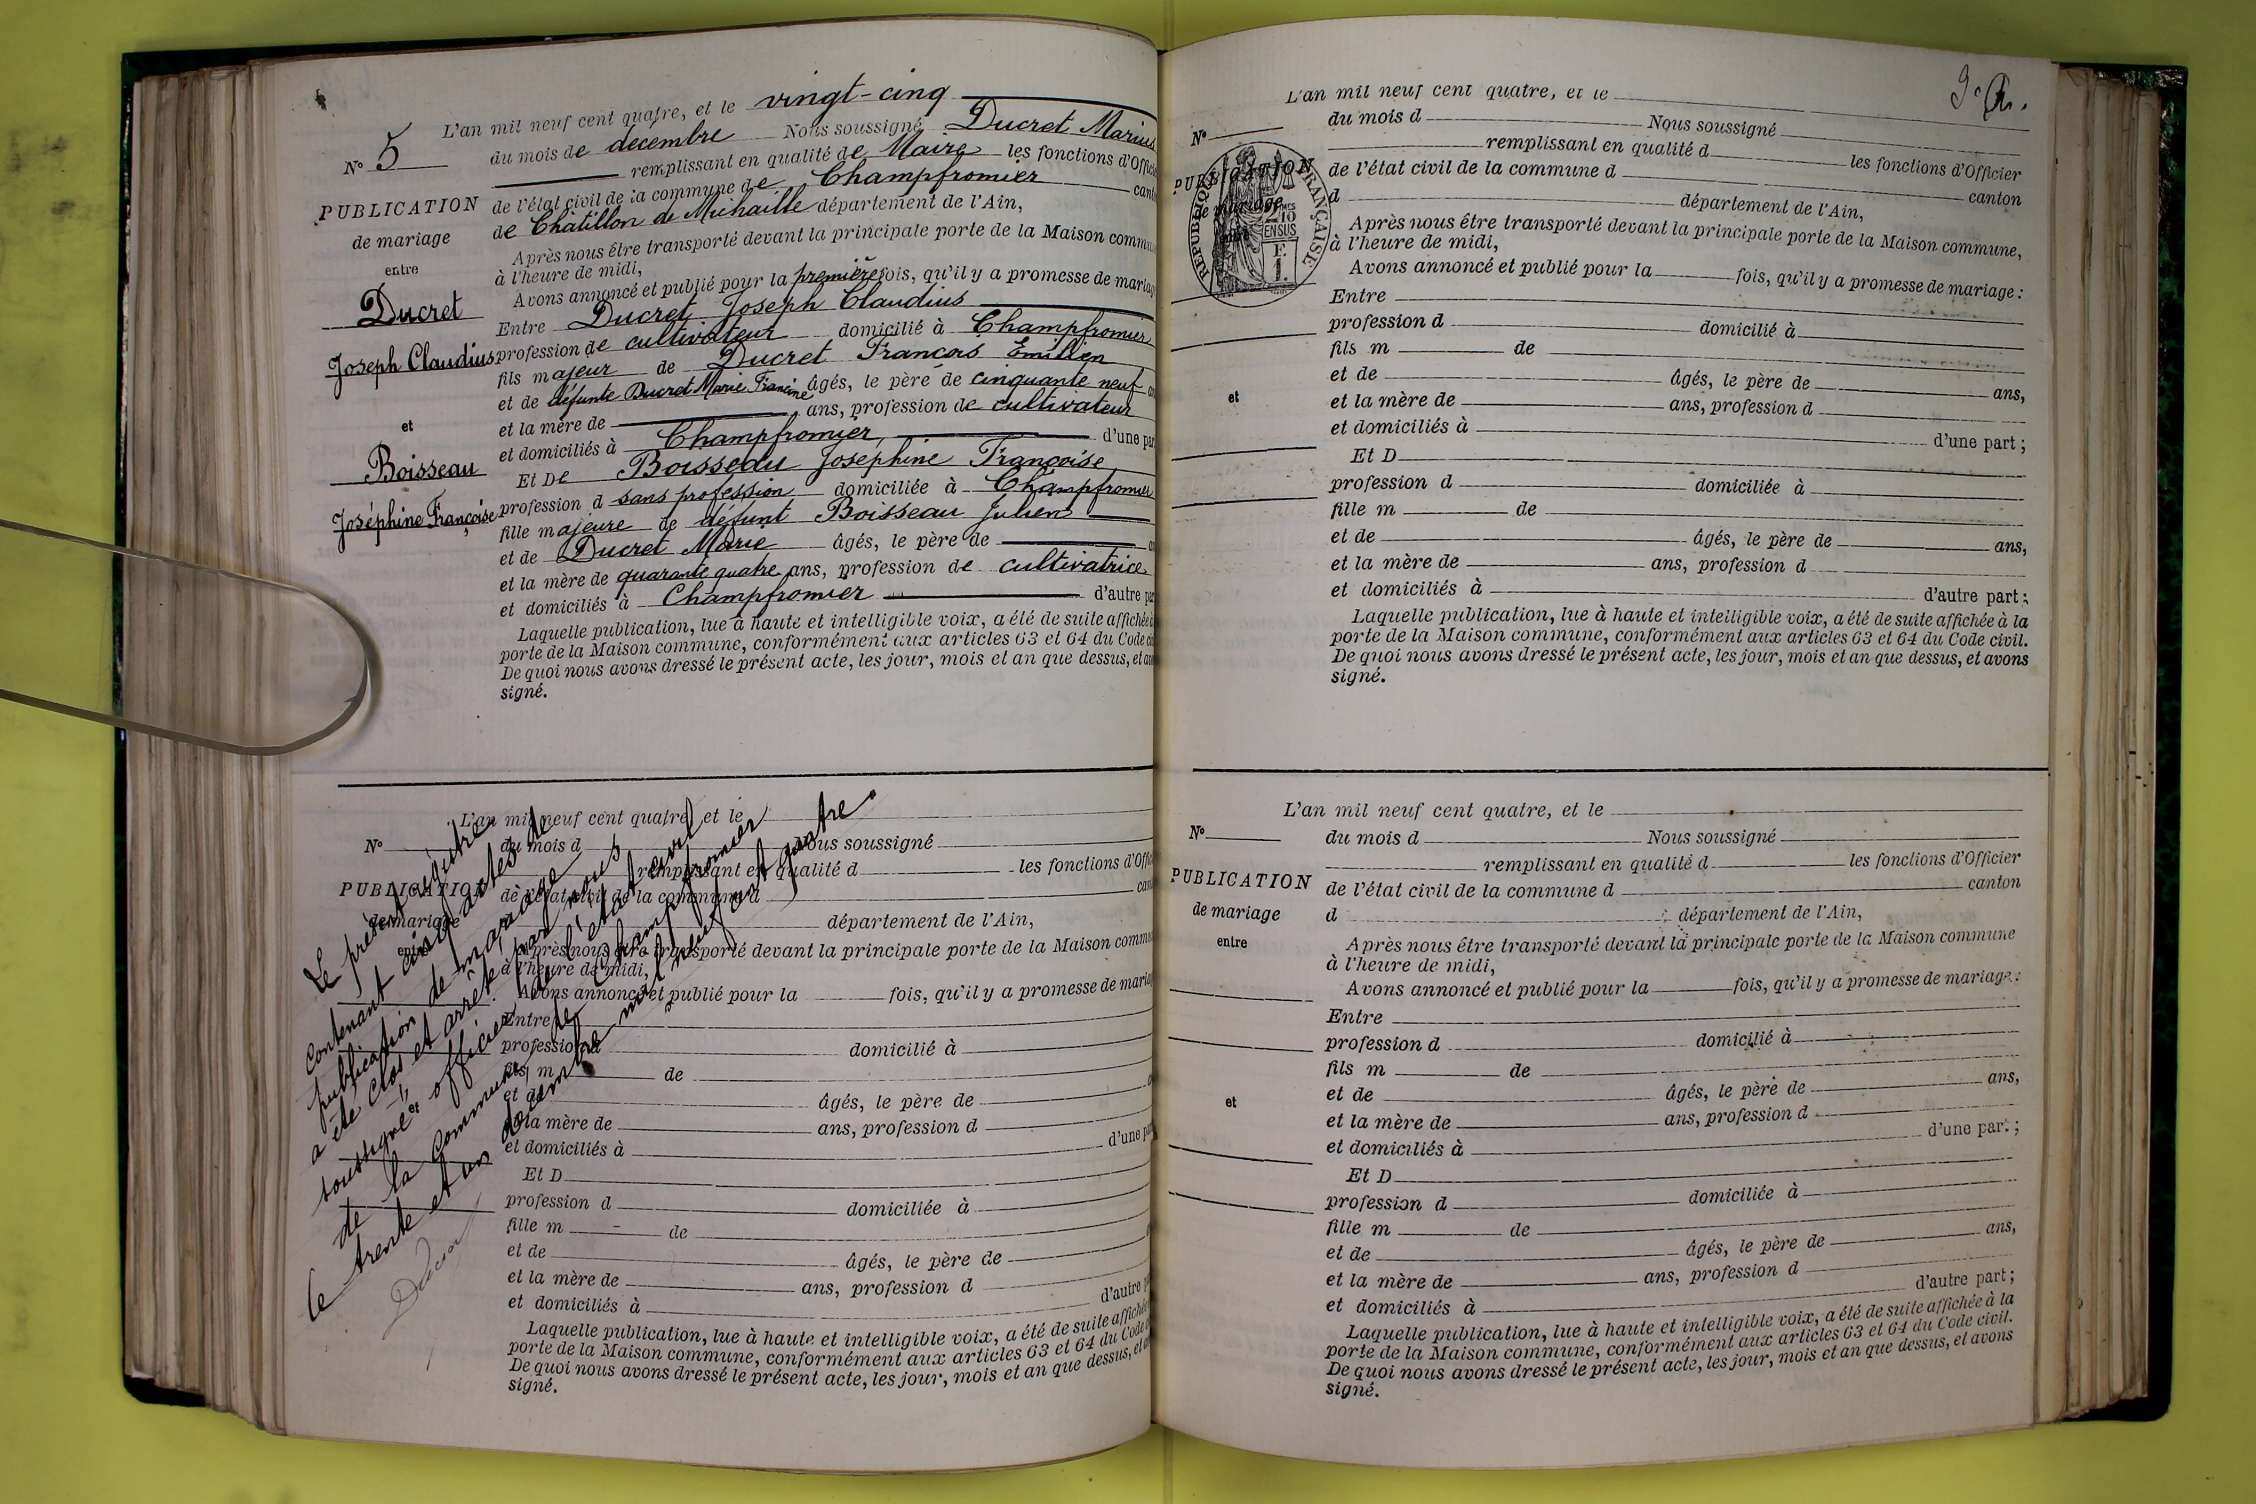 L'an mil neuf cent quatre, et le vingt-cinq
N° 5
du mois de décembre Nous soussigné Ducret Marius
remplissant en qualité de Maire les fonctions d'Offici
PUBLICATION
de mariage
entre
Ducret
Joseph Claudius
et
Boisseau
Joséphine Françoise
de l'état civil de la commune de Champfromier cant
de Châtillon de Michaille département de l'Ain,
Après nous être transporté devant la principale porte de la Maison commu
à l'heure de midi,
Avons annoncé et publié pour la première fois, qu'il y a promesse de mariag
Entre Ducret Joseph Claudius
profession de cultivateur domicilié à Champfromier
fils majeur de Ducret François Emilien
et de défunte Ducret Marie Francine âgés, le père de cinquante neuf an
et la mère de ans, profession de cultivateur
et domiciliés à Champfromier d'une par
Et De Boisseau Joséphine Françoise
profession d sans profession domiciliée à Champfromier
fille majeure de défunt Boisseau Julien
et de Ducret Marie âgés, le père de an
et la mère de quarante quatre ans, profession de cultivatrice
et domiciliés à Champfromier d'autre par
Laquelle publication, lue à haute et intelligible voix, a été de suite affichée à
porte de la Maison commune, conformément aux articles 63 et 64 du Code ci
De quoi nous avons dressé le présent acte, les jour, mois et an que dessus, et avo
signé.
L'an mil neuf cent quatre, et le
N°
du mois d Nous soussigné
remplissant en qualité d les fonctions d'Offic
PUBLICATION
de mariage
entre
de l'état civil de la commune d cant
département de l'Ain,
Après nous être transporté devant la principale porte de la Maison commu
à l'heure de midi,
Avons annoncé et publié pour la fois, qu'il y a promesse de mariag
Entre
profession d domicilié à
fils m de
et de âgés, le père de
et la mère de ans, profession d
et domiciliés à d'une par
Et D
profession d domiciliée à
fille m de
et de âgés, le père de
et la mère de ans, profession d
et domiciliés à d'autre pa
Laquelle publication, lue à haute et intelligible voix, a été de suite affichée
porte de la Maison commune, conformément aux articles 63 et 64 du Code
De quoi nous avons dressé le présent acte, les jour, mois et an que dessus, et a
signé.
Le présent registre
contenant cinq actes de
publication de mariage
a été clos et arrêté par nous
soussigné officier de l'état civil
de la commune de Champfromier
le trente et un décembre mil neuf cent quatre
Ducret
L'an mil neuf cent quatre, et le
N°
du mois d Nous soussigné
remplissant en qualité d les fonctions d'Officier
PUBLICATION
de mariage
RÉPUBLIQUE FRANÇAISE
et
de l'état civil de la commune d canton
d département de l'Ain,
Après nous être transporté devant la principale porte de la Maison commune,
à l'heure de midi,
Avons annoncé et publié pour la fois, qu'il y a promesse de mariage :
Entre
profession d domicilié à
fils m de
et de âgés, le père de ans,
et la mère de ans, profession d
et domiciliés à d'une part ;
Et D
profession d domiciliée à
fille m de
et de âgés, le père de ans,
et la mère de ans, profession d
et domiciliés à d'autre part ;
Laquelle publication, lue à haute et intelligible voix, a été de suite affichée à la
porte de la Maison commune, conformément aux articles 63 et 64 du Code civil.
De quoi nous avons dressé le présent acte, les jour, mois et an que dessus, et avons
signé.
L'an mil neuf cent quatre, et le
N°
du mois d Nous soussigné
remplissant en qualité d les fonctions d'Officier
PUBLICATION
de mariage
entre
et
de l'état civil de la commune d canton
d département de l'Ain,
Après nous être transporté devant la principale porte de la Maison commune
à l'heure de midi,
Avons annoncé et publié pour la fois, qu'il y a promesse de mariage :
Entre
profession d domicilié à
fils m de
et de âgés, le père de ans,
et la mère de ans, profession d
et domiciliés à d'une part ;
Et D
profession d domiciliée à
fille m de
et de âgés, le père de ans,
et la mère de ans, profession d
et domiciliés à d'autre part ;
Laquelle publication, lue à haute et intelligible voix, a été de suite affichée à la
porte de la Maison commune, conformément aux articles 63 et 64 du Code civil.
De quoi nous avons dressé le présent acte, les jour, mois et an que dessus, et avons
signé.